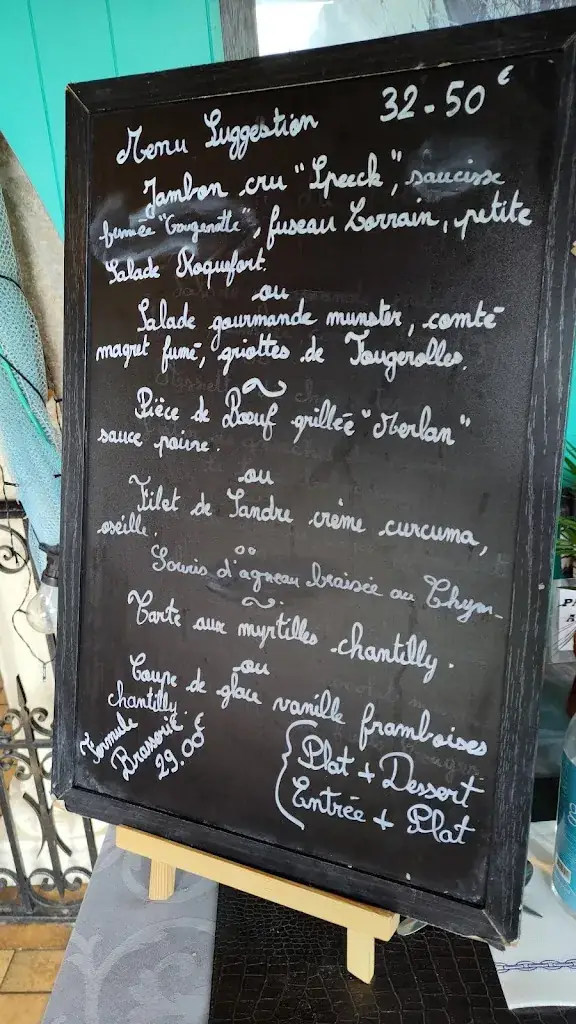 Menu Suggestion 32.50 €
Jambon cru "Speeck", saucisse
fumée "Gougenotte", fuseau Lorrain, petite
Salade Roquefort.
ou
Salade gourmande munster, comté
magret fumé, griottes de Fougerolles.
Pièce de Bœuf grilleé "Merlan"
sauce poivre.
ou
Filet de Sandre crème curcuma,
oseille.
ou
Souris d'agneau braisée au Thym
Tarte aux myrtilles chantilly.
ou
Coupe de glace vanille framboises
chantilly.
Formule
Brasserie €
29.00
Plat + Dessert
Entrée + Plat